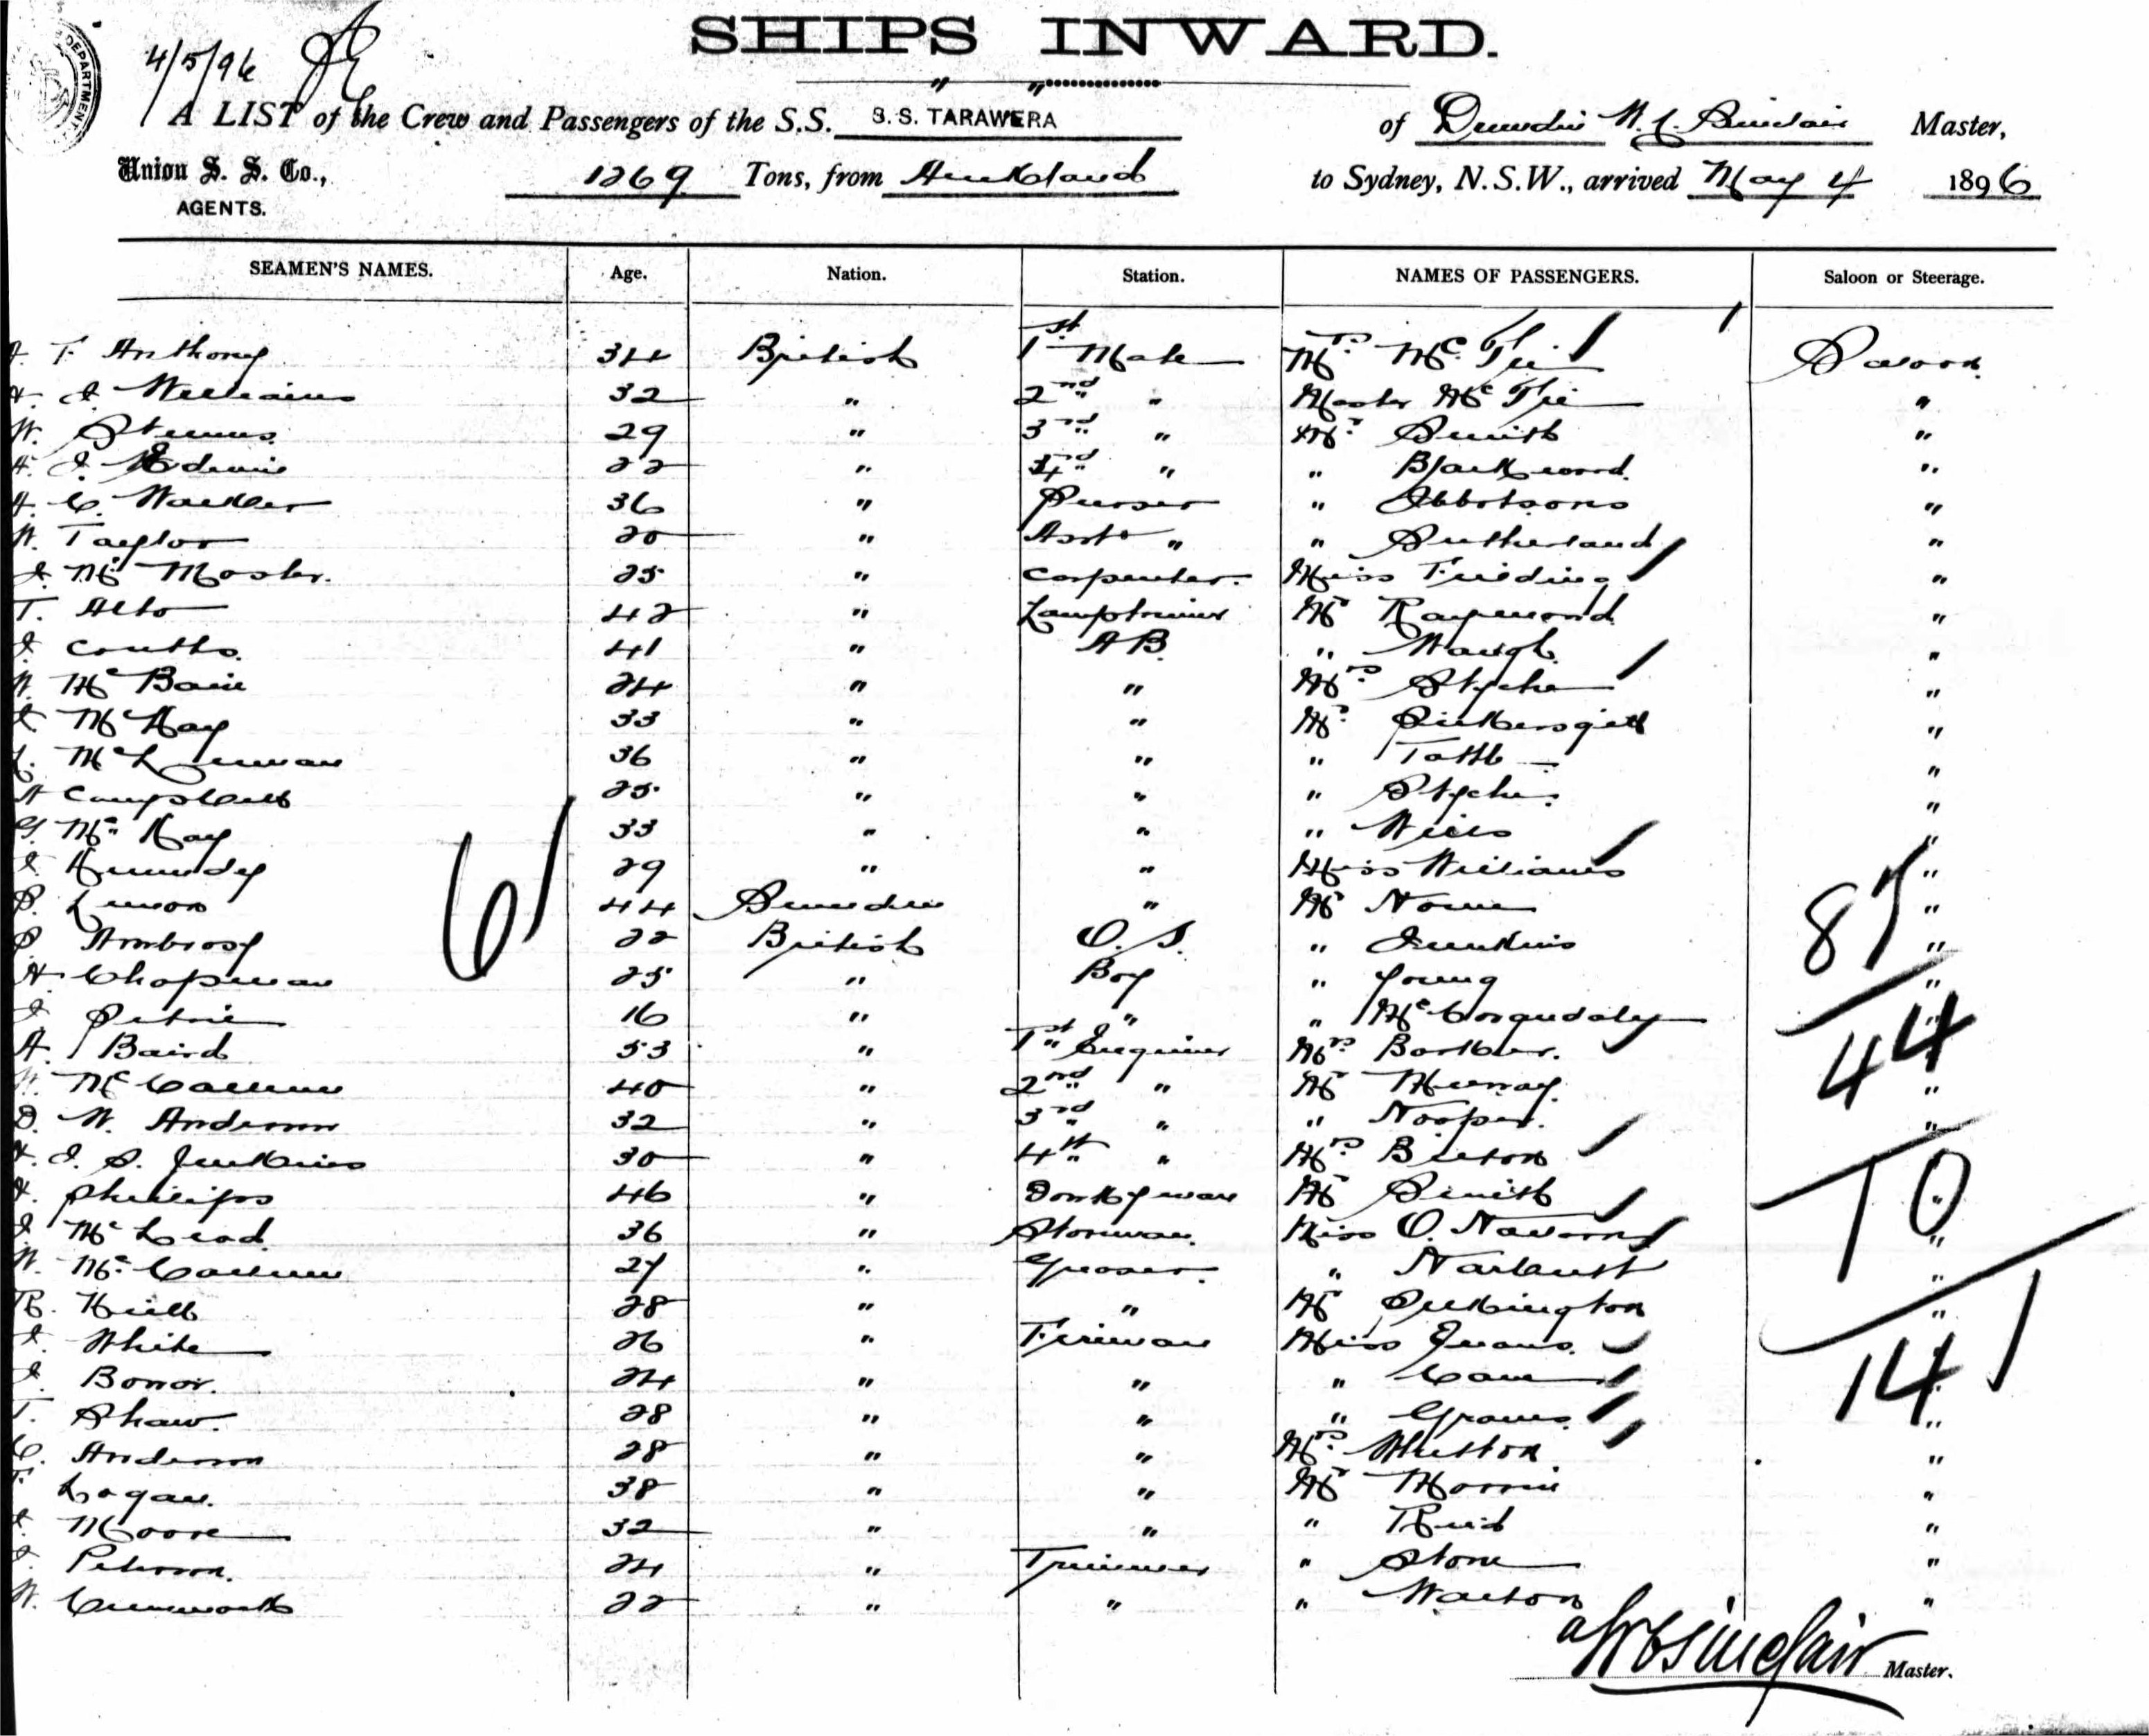 DEPARTMENT
4/5/96
SHIPS INWARD.
A LIST of the Crew and Passengers of the S.S. S.S. TARAWERA of Dunedin W. C. Sinclair Master,
Union S. S. Co., 1269 Tons, from Auckland to Sydney, N.S.W., arrived May 4 1896
AGENTS.
SEAMEN'S NAMES. Age. Nation. Station. NAMES OF PASSENGERS. Saloon or Steerage.
T. Anthony 34 British 1st Mate Mrs Mc Saloon
J Williams 32 " 2nd " Master Mc "
W. 29 " 3rd " Mr Smith "
H. J. 22 " 4 " " Blackwood "
H. C. Walker 36 " Purser " Ibbotsons "
W. Taylor 20 " Asst " " Sutherland "
J. Mc Master. 25 " Carpenter. Miss "
T. Alto 42 " Lamptrimmer Mr Raymond "
J Coutts. 41 " AB. " Waugh. "
W. Mc Bain 24 " " Mrs Styche "
J McKay 33 " " Mr Pickersgill "
McLennan 36 " " " "
A Campbell 25 " " " Styche. "
G. Mc Kay 33 " " " Wills "
J Kennedy 29 " " Miss Williams "
P. Lemon 44 Sweden " Mr "
P Ambrose 22 British O.S. " Jenkins "
H. Chapman 25 " Boy " Young "
J Petrie 16 " " " McCorquodaly
A. Baird 53 " 1st Engineer Mrs Barker.
Mc Callum 40 " 2nd " Mr Murray. "
D. W. Anderson 32 " 3rd " " Hooper. "
J. S. Jenkins 30 " 4th " Mrs
Phillips 46 " Donkeyman Mr Smith "
J. McLeod. 36 " Storeman. Miss O. "
W. Mc Callum 27 " Greaser. " "
R. Hill 28 " " Mr Pilkington "
J. White 26 " Fireman Miss Evans. "
J. Bonar. 24 " " "
T. Shaw. 28 " " " Graves. "
C. Anderson 28 " " Mrs "
Logan. 38 " " Mr Morris "
J. Moore 32 " " " Reid "
J. Peterson. 24 " Trimmer " Stone "
W. 22 " " " Walton "
61
87
44
10
141
W C Sinclair Master.